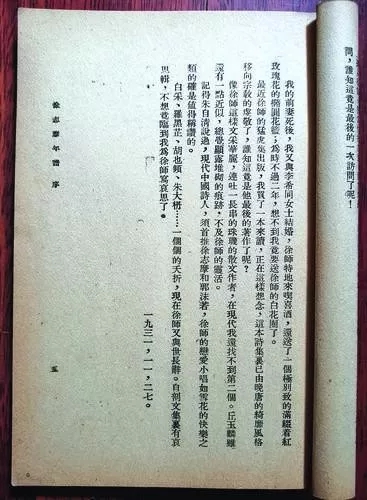 問，誰知這竟是最後的一次訪問了呢！
我的前妻死後，我又與李希同女士結婚，徐師特地來喫喜酒，還送了一個極別致的滿綴着紅
玫瑰花的橢圓花籃；為時不過二年，想不到我竟要送徐師的白花圈了。
最近徐師的猛虎集出版，我買了一本來讀，正在這樣想念，這本詩集裏已由晚唐的綺靡風格
移向宗敎的虔敬了，誰知這竟是他最後的著作了呢？
像徐師這樣文采華麗，連吐一長串的珠璣的散文作者，在現代我還找不到第二個。丘玉麟雖
還有一點近似，總覺顯露堆砌的痕跡，不及徐師的靈活。
記得朱自清說過，現代中國詩人，須首推徐志摩和郭沫若，徐師的戀愛小唱如雪花的快樂之
類的確是值得稱讚的。
白采、羅黑芷、胡也頻、朱大枬……一個個的夭折，現在徐師又與世長辭。自剖文集裏有哀
思輯，不想竟臨到我為徐師寫哀思了。
一九三一，一一，二七。
徐志摩年譜 序
五